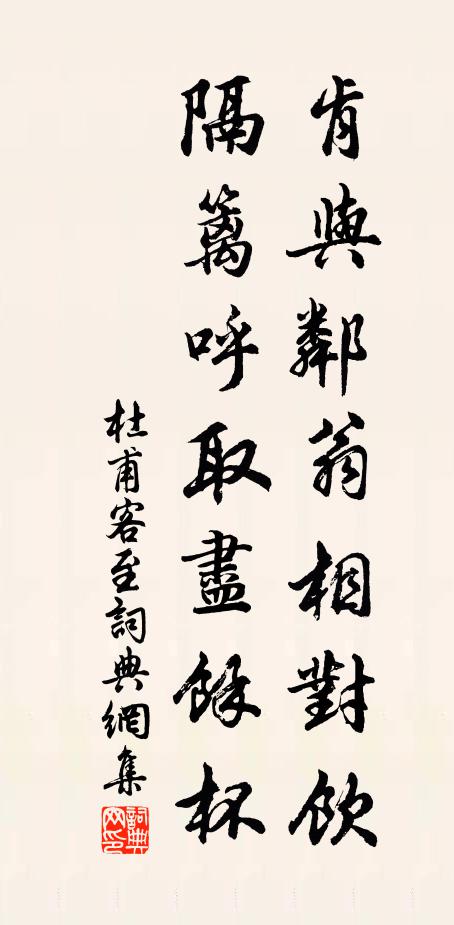 肯與鄰翁相對飲
隔籬呼取盡餘杯
杜甫客至詞典網集
詞典
网印